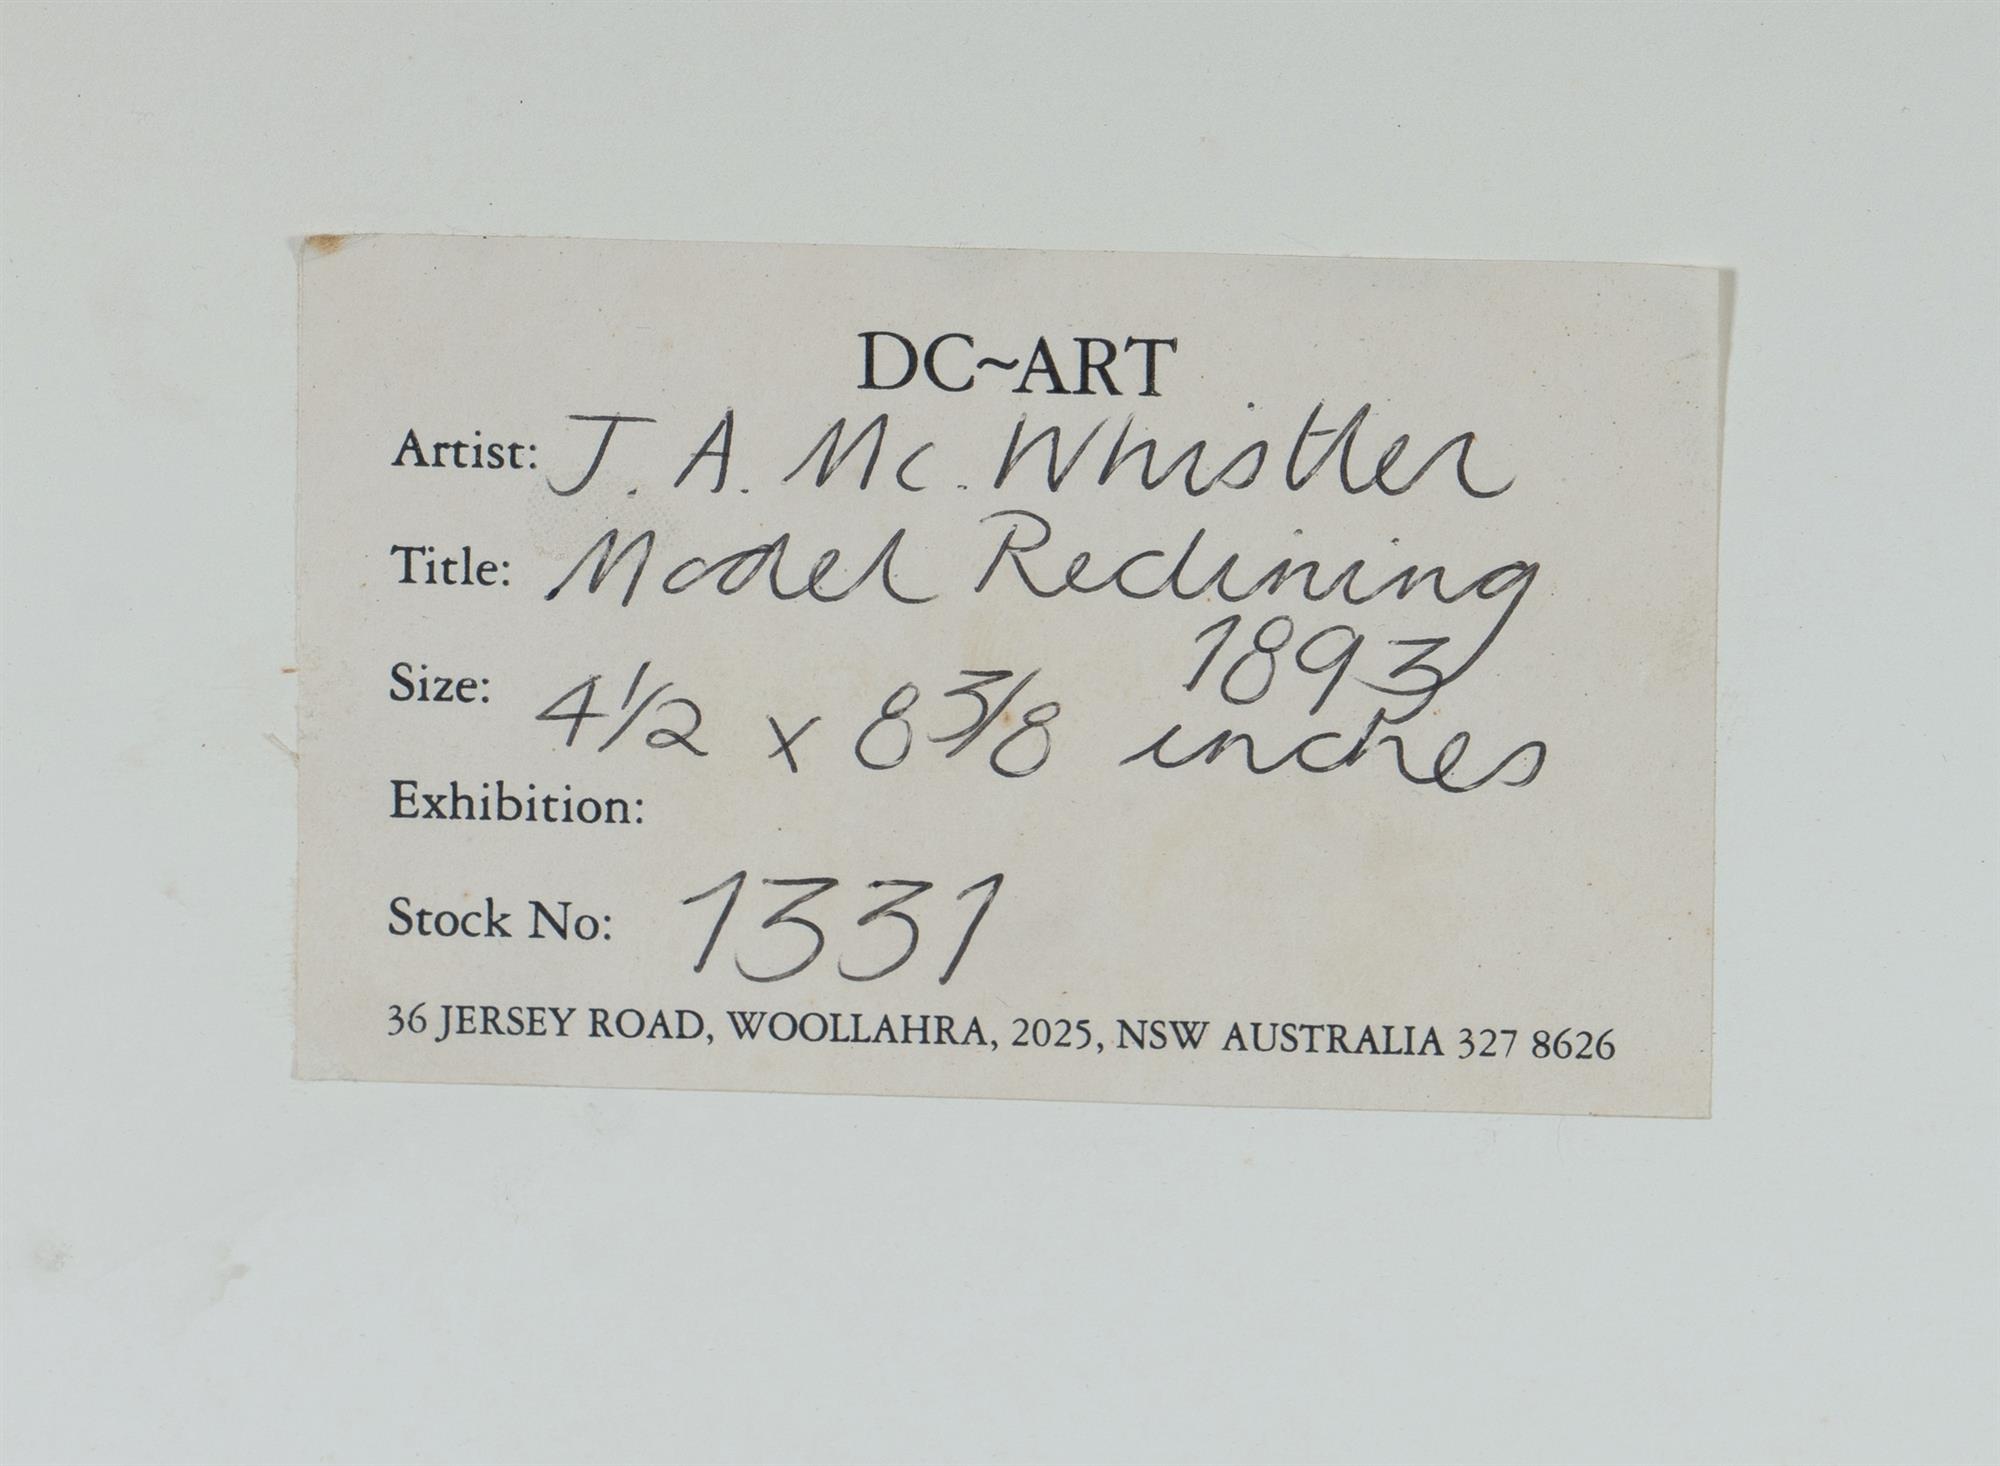 DC~ART
Artist: J. A. Mc. Whistler
Title: Model Reclining
1893
Size: 4 1/2 x 8 3/8 inches
Exhibition:
Stock No: 1331
36 JERSEY ROAD, WOOLLAHRA, 2025, NSW AUSTRALIA 327 8626